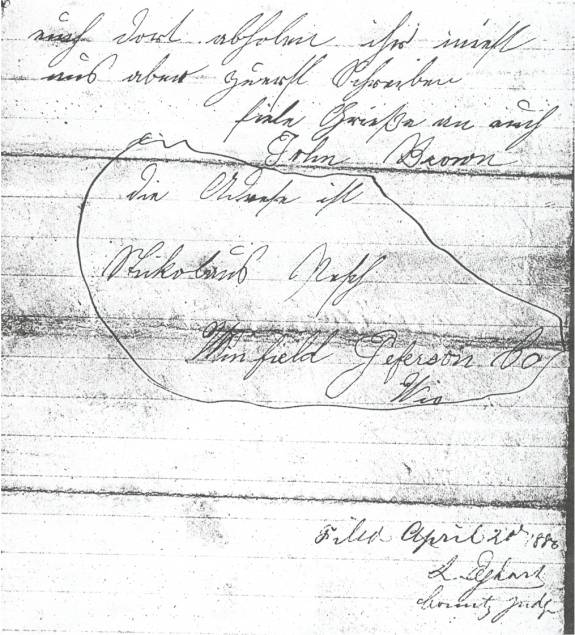 euch dort abholen ihr müßt
uns aber zuerst Schreiben
fiele Grieße an euch
John Brown
die Adreße ist
Nikolaus Resch
Winfield Jeferson Co
Wis
Filed April 2d 1880
County Judge